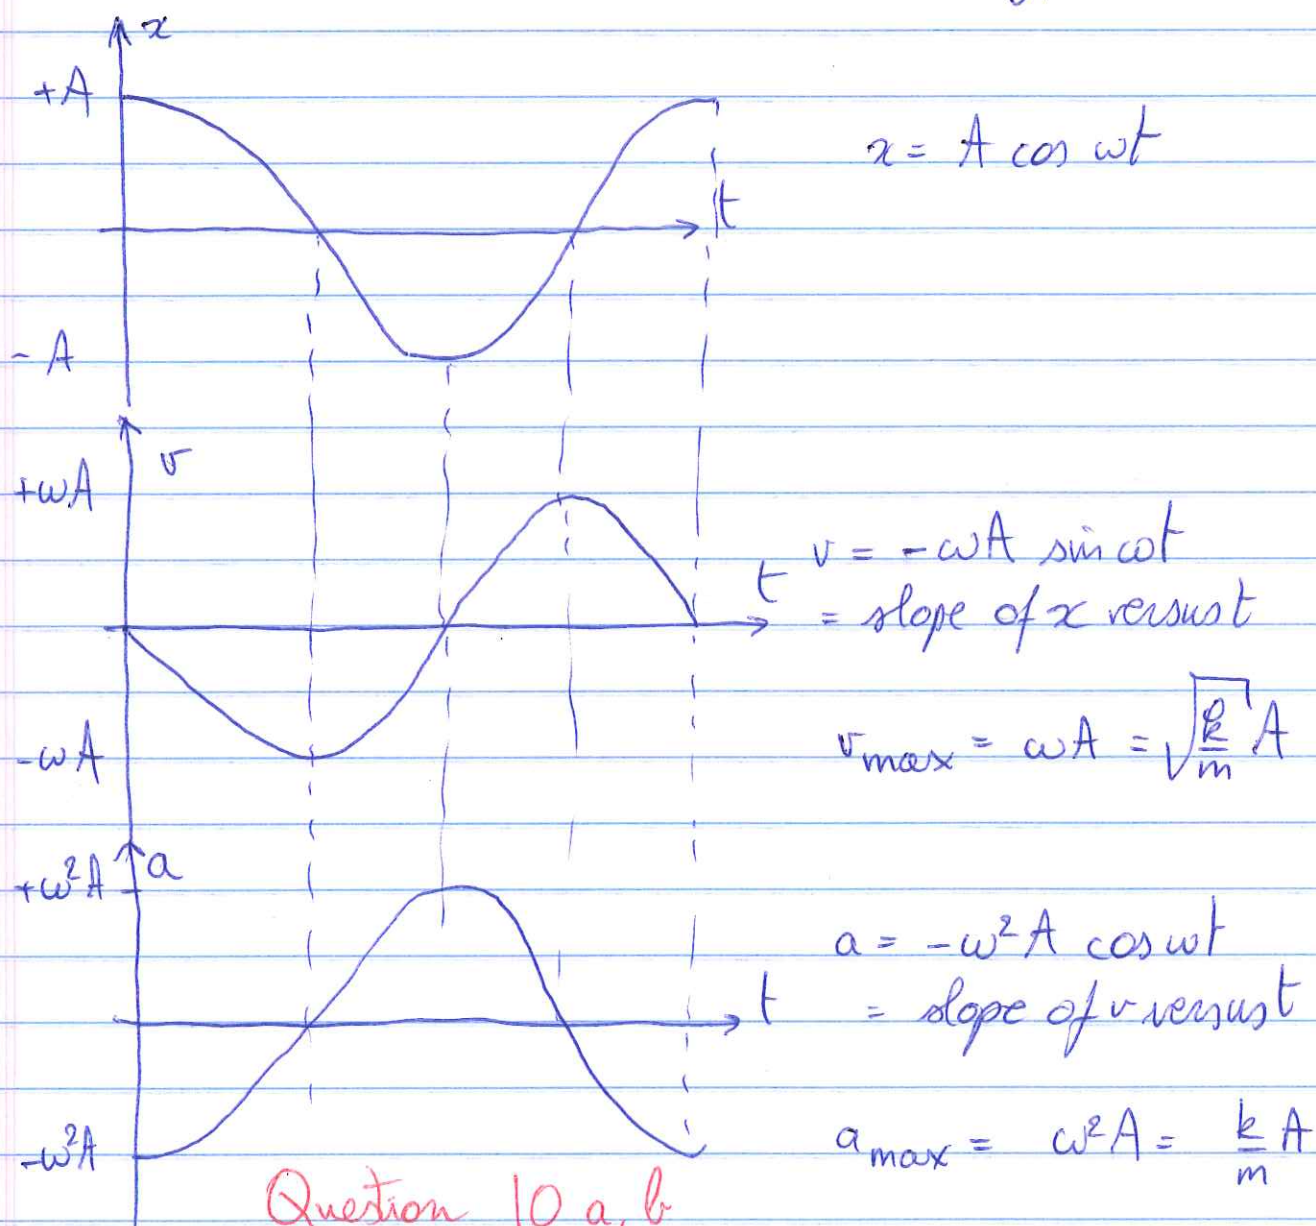 x
+A
x = A cos ωt
t
- A
v
+ωA
v = -ωA sin ωt
t
= slope of x versus t
-ωA
v max = ωA = √k/m A
a
+ω²A
a = -ω²A cos ωt
t
= slope of v versus t
-ω²A
a max = ω²A = k/m A
Question 10 a, b